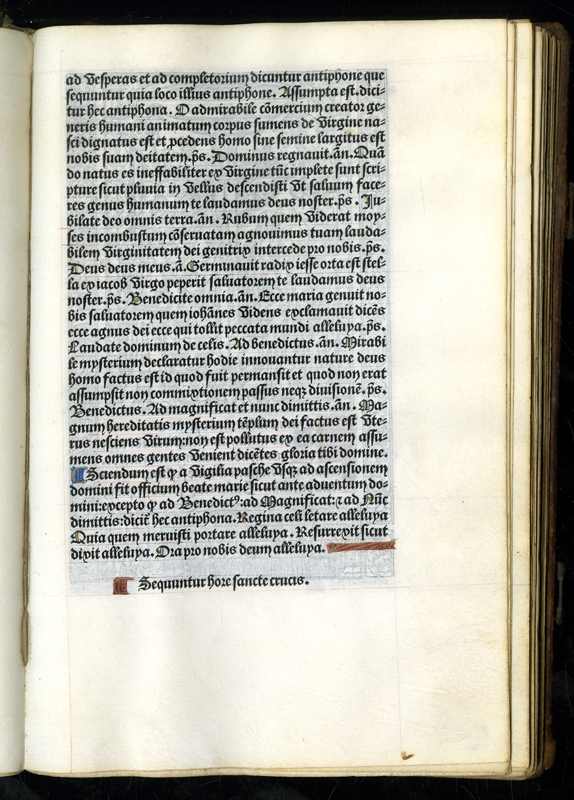 ad Vesperas et ad completorium dicuntur antiphone que
sequuntur quia loco illius antiphone. Assumpta est. dici-
tur hec antiphona. O admirabile cōmercium creator ge-
neris humani animatum corpus sumens de Virgine na-
sci dignatus est et ꝓcedens homo sine semine largitus est
nobis suam deitatem. p̄s. Dominus regnauit. an̄. Quā
do natus es ineffabiliter ex Virgine tūc implete sunt scri-
pture sicut pluuia in Vellus descendisti Vt saluum face-
res genus humanum te laudamus deus noster. p̄s. Iu-
bilate deo omnis terra. an̄. Rubum quem Viderat moy-
ses incombustum cōseruatam agnouimus tuam lauda-
bilem Virginitatem dei genitrix intercede pro nobis. p̄s.
Deus deus meus. ā. Germinauit radix iesse orta est stel-
la ex iacob Virgo peperit saluatorem te laudamus deus
noster. p̄s. Benedicite omnia. an̄. Ecce maria genuit no-
bis saluatorem quem iohānes Videns exclamauit dicēs
ecce agnus dei ecce qui tollit peccata mundi alleluya. p̄s.
Laudate dominum de celis. Ad benedictus. an̄. Mirabi
le mysterium declaratur hodie innouantur nature deus
homo factus est id quod fuit permansit et quod non erat
assumpsit non commixtionem passus neqꝫ diuisionē. p̄s.
Benedictus. Ad magnificat et nunc dimittis. an̄. Ma-
gnum hereditatis mysterium tēplum dei factus est Vte-
rus nesciens Virum: non est pollutus ex ea carnem assu-
mens omnes gentes Venient dicētes gloria tibi domine.
Sciendum est ꝙ a Vigilia pasche Vsqꝫ ad ascensionem
domini fit officium beate marie sicut ante aduentum do-
mini: excepto ꝙ ad Benedictꝰ: ad Magnificat: ⁊ ad Nūc
dimittis: dicit̄ hec antiphona. Regina celi letare alleluya
Quia quem meruisti portare alleluya. Resurrexit sicut
dixit alleluya. Ora pro nobis deum alleluya.
Sequuntur hore sancte crucis.